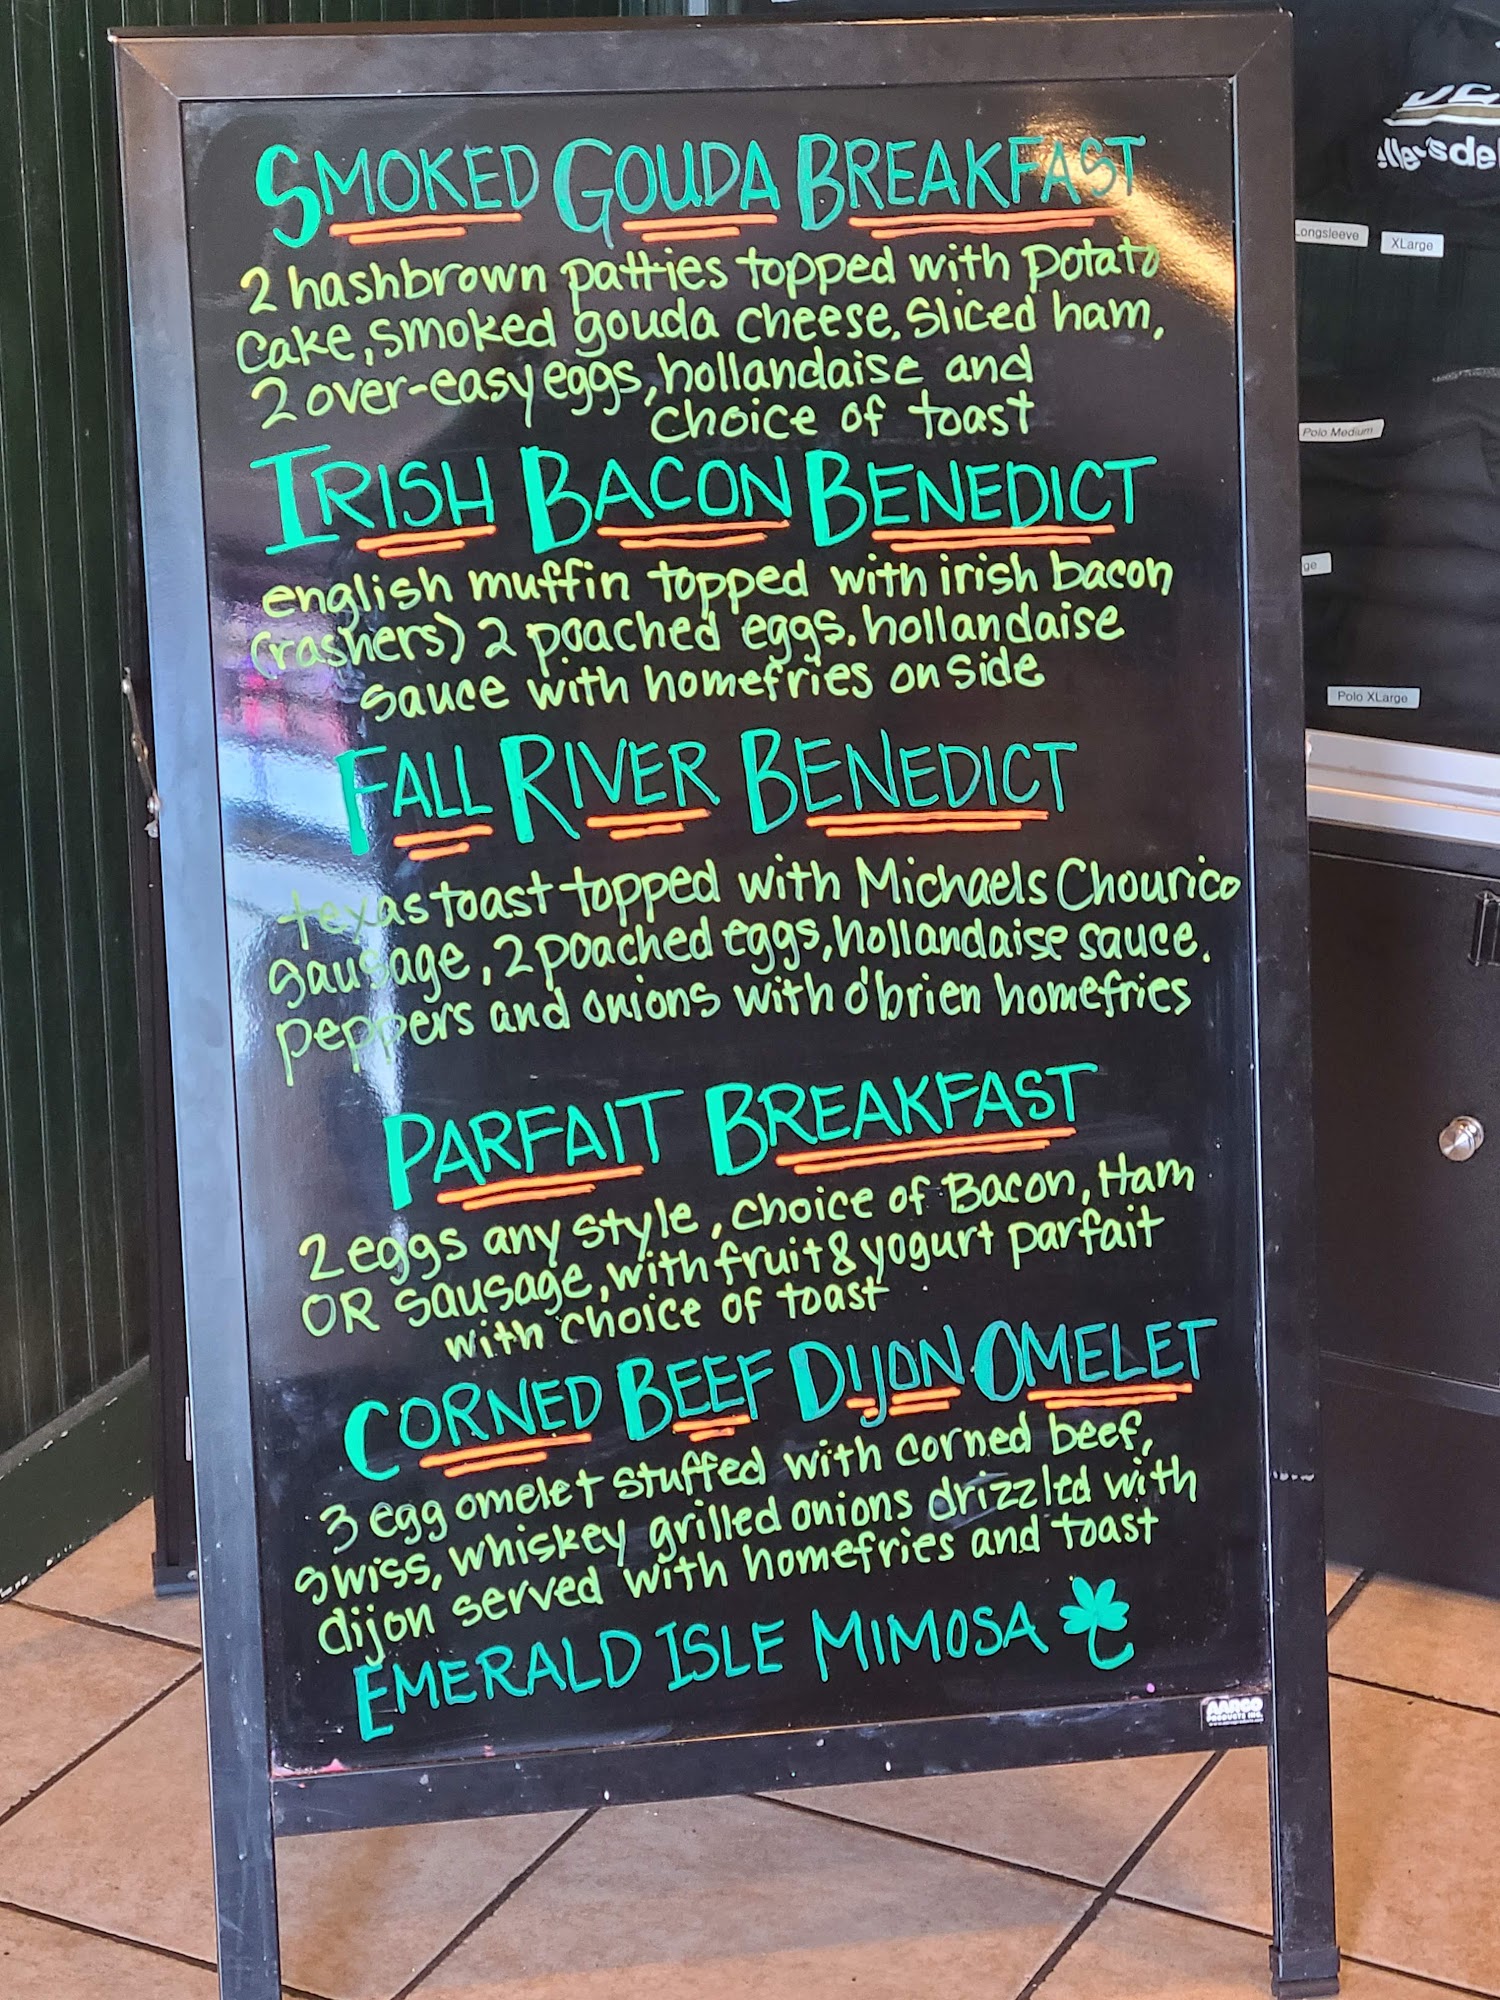 SMOKED GOUDA BREAKFAST
2 hashbrown patties topped with potato
cake, smoked gouda cheese, sliced ham,
2 over-easy eggs, hollandaise and
choice of toast
IRISH BACON BENEDICT
english muffin topped with irish bacon
(rashers) 2 poached eggs, hollandaise
sauce with homefries on side
FALL RIVER BENEDICT
texas toast topped with Michaels Chourico
sausage, 2 poached eggs, hollandaise sauce.
peppers and onions with o'brien homefries
PARFAIT BREAKFAST
2 eggs any style, choice of Bacon, Ham
OR sausage, with fruit & yogurt parfait
with choice of toast
CORNED BEEF DIJON OMELET
3 egg omelet stuffed with corned beef,
swiss, whiskey grilled onions drizzled with
dijon served with homefries and toast
EMERALD ISLE MIMOSA
AARCO
PRODUCTS INC.
Longsleeve
XLarge
Polo Medium
Polo XLarge